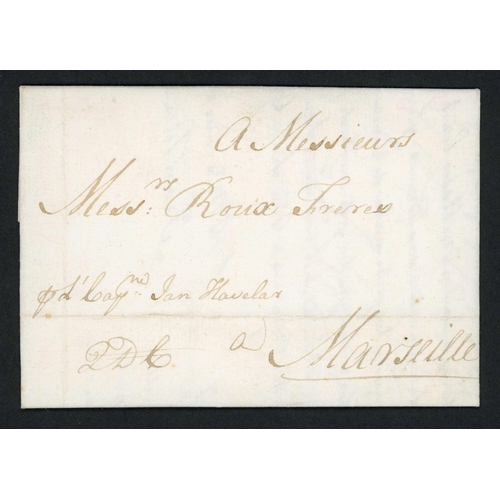 A Messieurs
Messrs: Roux Freres
p l'Capne Jan Havelar
QDC. a Marseille